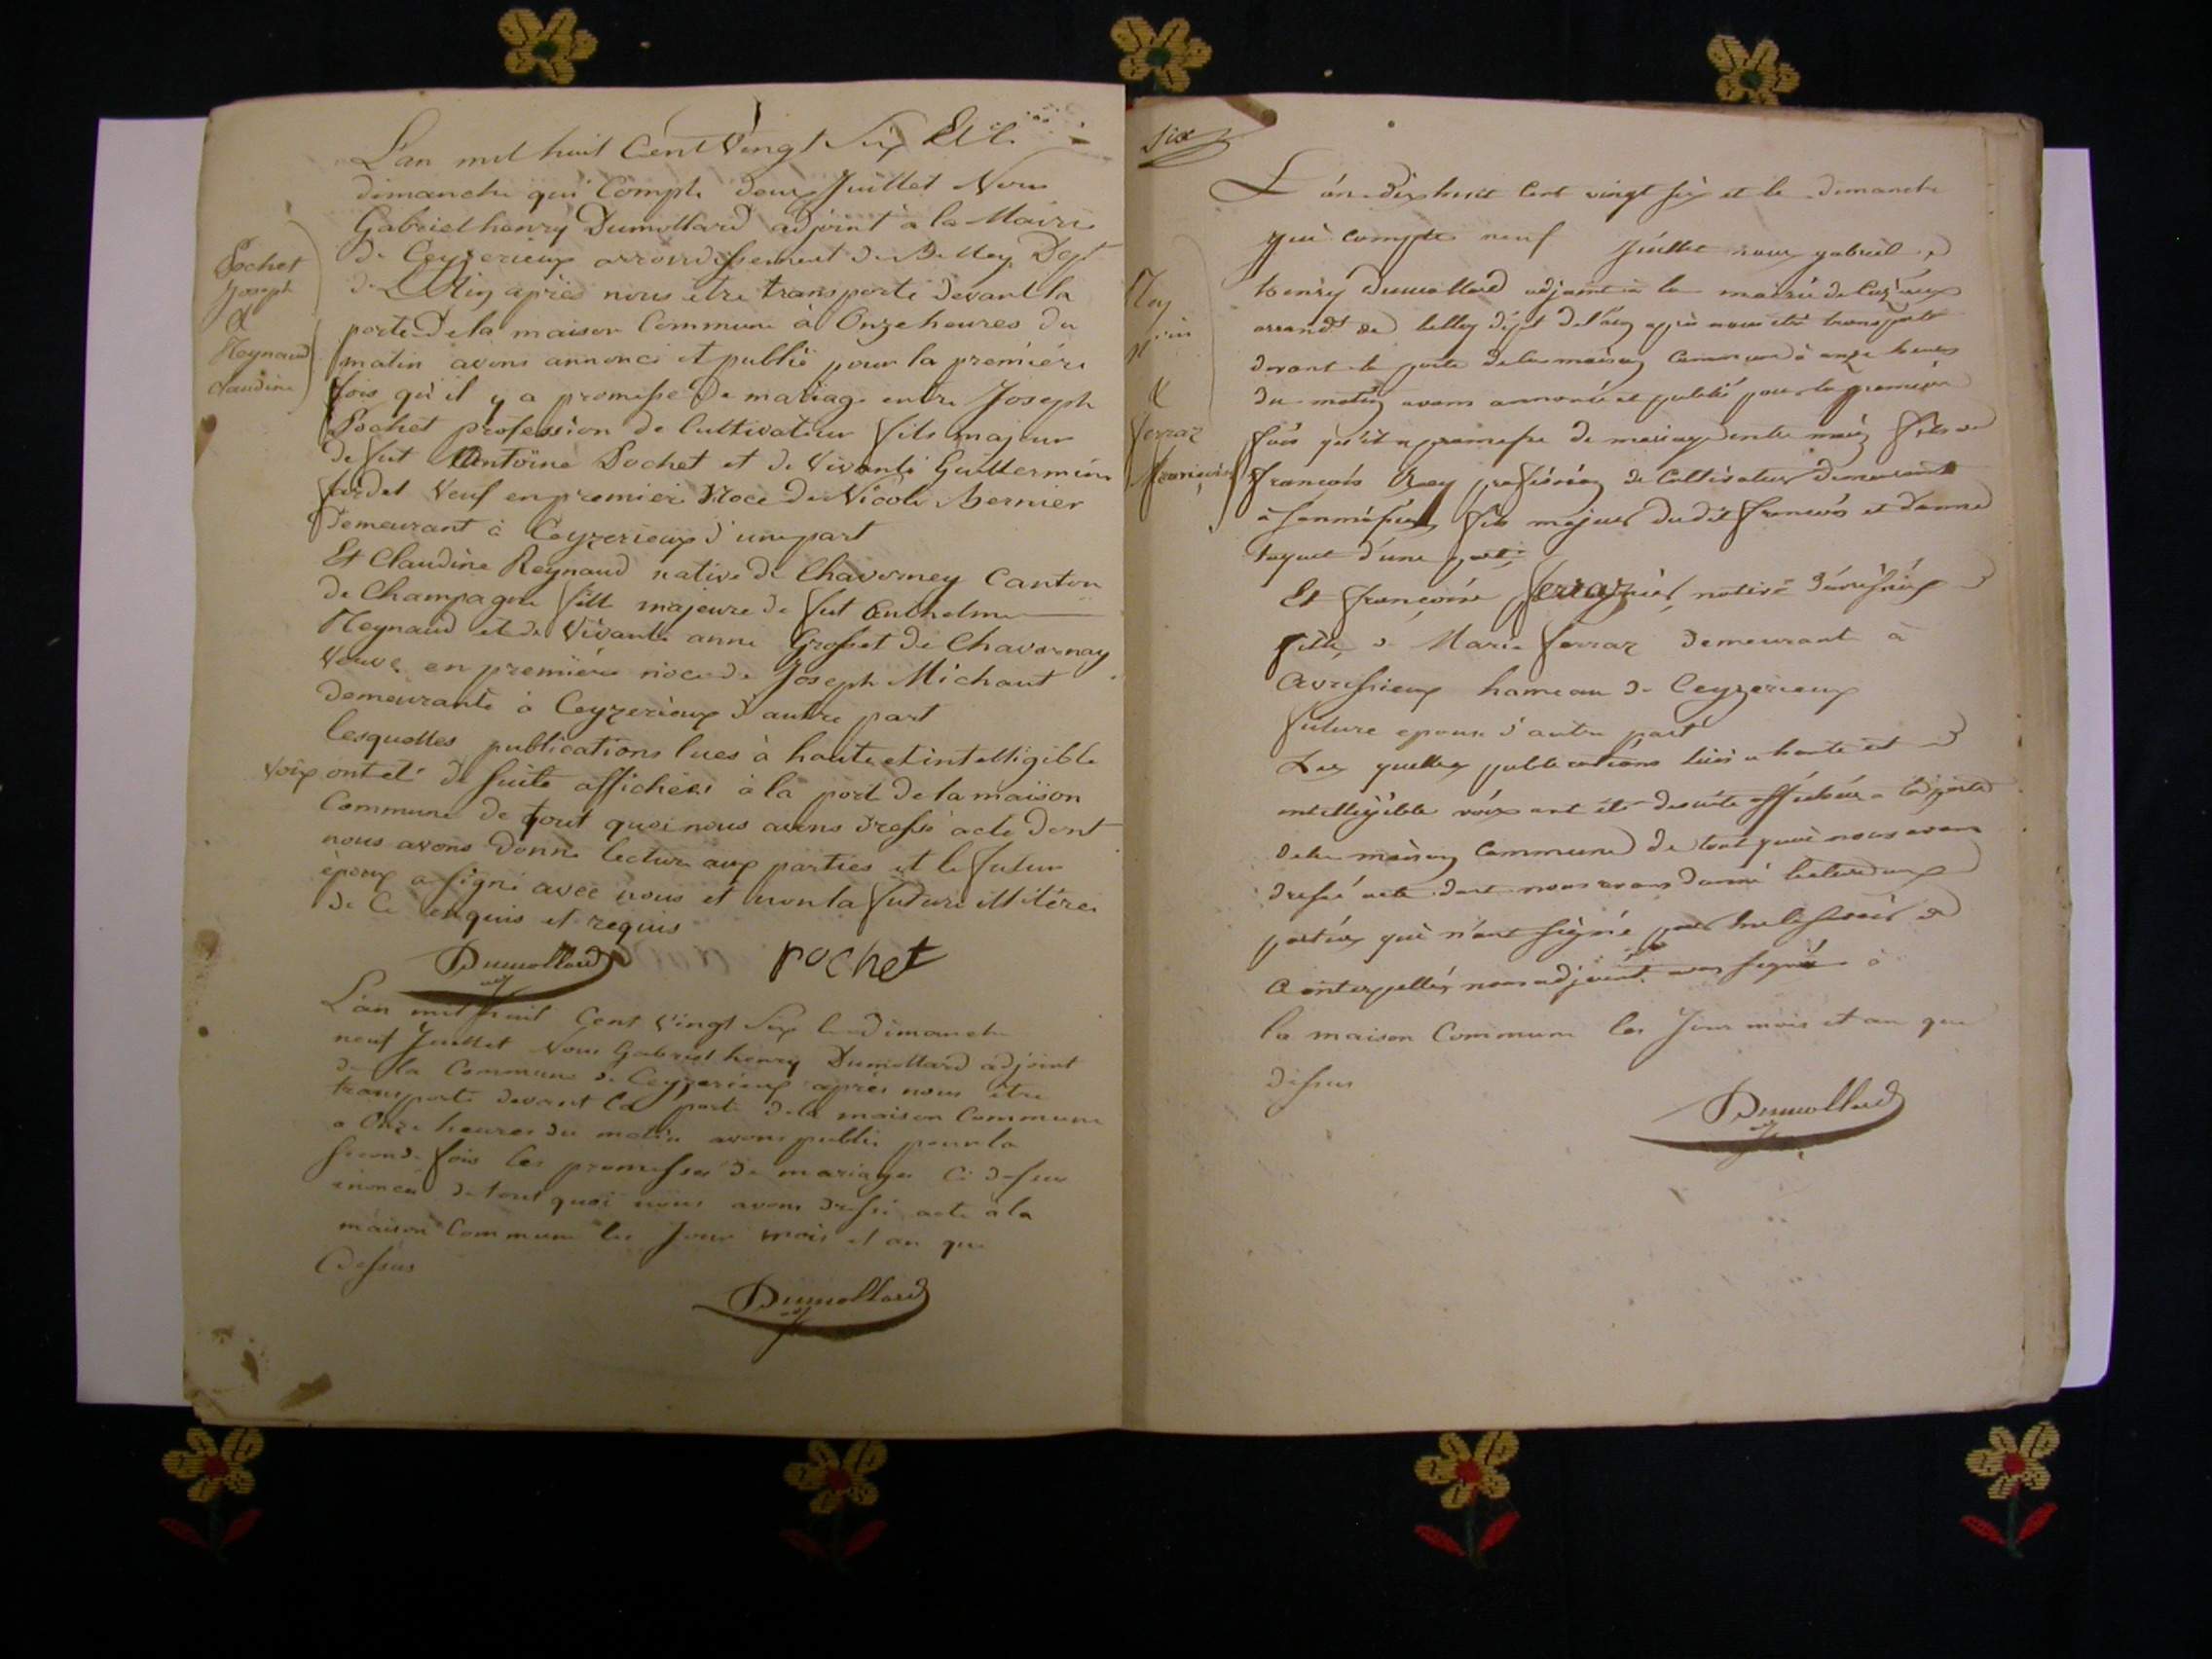 L'an mil huit Cent Vingt Six Et le
dimanche qui Compte deux Juillet Nous
Gabriel henry Dumollard adjoint à la Mairie
de Ceyzerieux arrondissement de Belley Dept
de L'Ain après nous etre transporté devant la
porte de la maison Commune à Onze heures du
matin avons annoncé et publié pour la première
fois qu'il y a promesse de mariage entre Joseph
Pochet profession de Cultivateur fils majeur
de fut Antoine Pochet et de Vivante Guillermine
Jardet Veuf en premiere Noce de Nicole Bernier
Demeurant à Ceyzerieux d'une part
Et Claudine Reynaud native de Chavorney Canton
de Champagne fille majeure de fut Anthelme
Reynaud et de Vivante anne Grosset de Chavornay
Veuve en première noce de Joseph Michaut
demeurante à Ceyzerieux d'autre part
lesquelles publications lues à haute et intelligible
Voix ont eté de suite affichées à la porte de la maison
Commune de tout quoi nous avons dressé acte dont
nous avons donné lecture aux parties et le futur
époux a signé avec nous et non la future illitérée
de Ce enquis et requis
Dumollard
adj
pochet
L'an mil huit Cent Vingt Six le dimanche
neuf Juillet Nous Gabriel henry Dumollard adjoint
de la Commune de Ceyzerieux après nous être
transporté devant la porte de la maison Commune
a Onze heures du matin avons publié pour la
seconde fois les promesses de mariages Ci dessus
énoncées de tout quoi nous avons dressé acte à la
maison Commune les Jour mois et an que
dessus
Dumollard
adj
Pochet
Joseph
&
Reynaud
Claudine
six
L'an dix huit Cent vingt six et le dimanche
qui Compte neuf Juillet nous gabriel
henry Dumollard adjoint à la mairie de
arrondt de belley dépt de l'ain après nous être transporté
devant la porte de la maison Commune à onze heures
du matin avons annoncé et publié pour la première
fois qu'il a promesse de mariage entre fils de
françois Rey profession de Cultivateur demeurant
à fils majeur dudit françois et danne
d'une part
Et françoise ferraz native d'avressieux
fille de Marie ferraz demeurant à
Avressieux hameau de Ceyzerieux
future epouse d'autre part
Les quelles publications lues a haute et
intelligible voix ont été de suite affichées a la porte
de la maison Commune de tout quoi nous avons
dressé acte dont nous avons donné lecture aux
parties qui n'ont signé pour ne le savoir de
Ce interpellés nous adjoint avons signé à
la maison Commune les Jour mois et an que
dessus
Dumollard
adj
Rey
&
ferraz
françoise